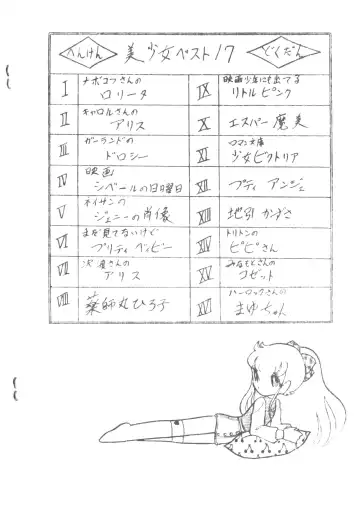 へんけん
美少女ベスト17
どくだん
I
ナボコフさんの
ロリータ
II
キャロルさんの
アリス
III
ガーランドの
ドロシー
IV
映画
シベールの日曜日
V
ネイサンの
ジェニーの肖像
VI
まだ見てないけど
プリティベイビー
VII
アリス
VIII
薬師丸ひろ子
IX
映画少年にも出てる
リトルピンク
X
エスパー魔美
XI
ロマン文庫
少女ビクトリア
XII
プティアンジェ
XIII
地引かずさ
XIV
トリトンの
ピピさん
XV
みなもとさんの
コゼット
XVI
ハーロックさんの
まゆちゃん